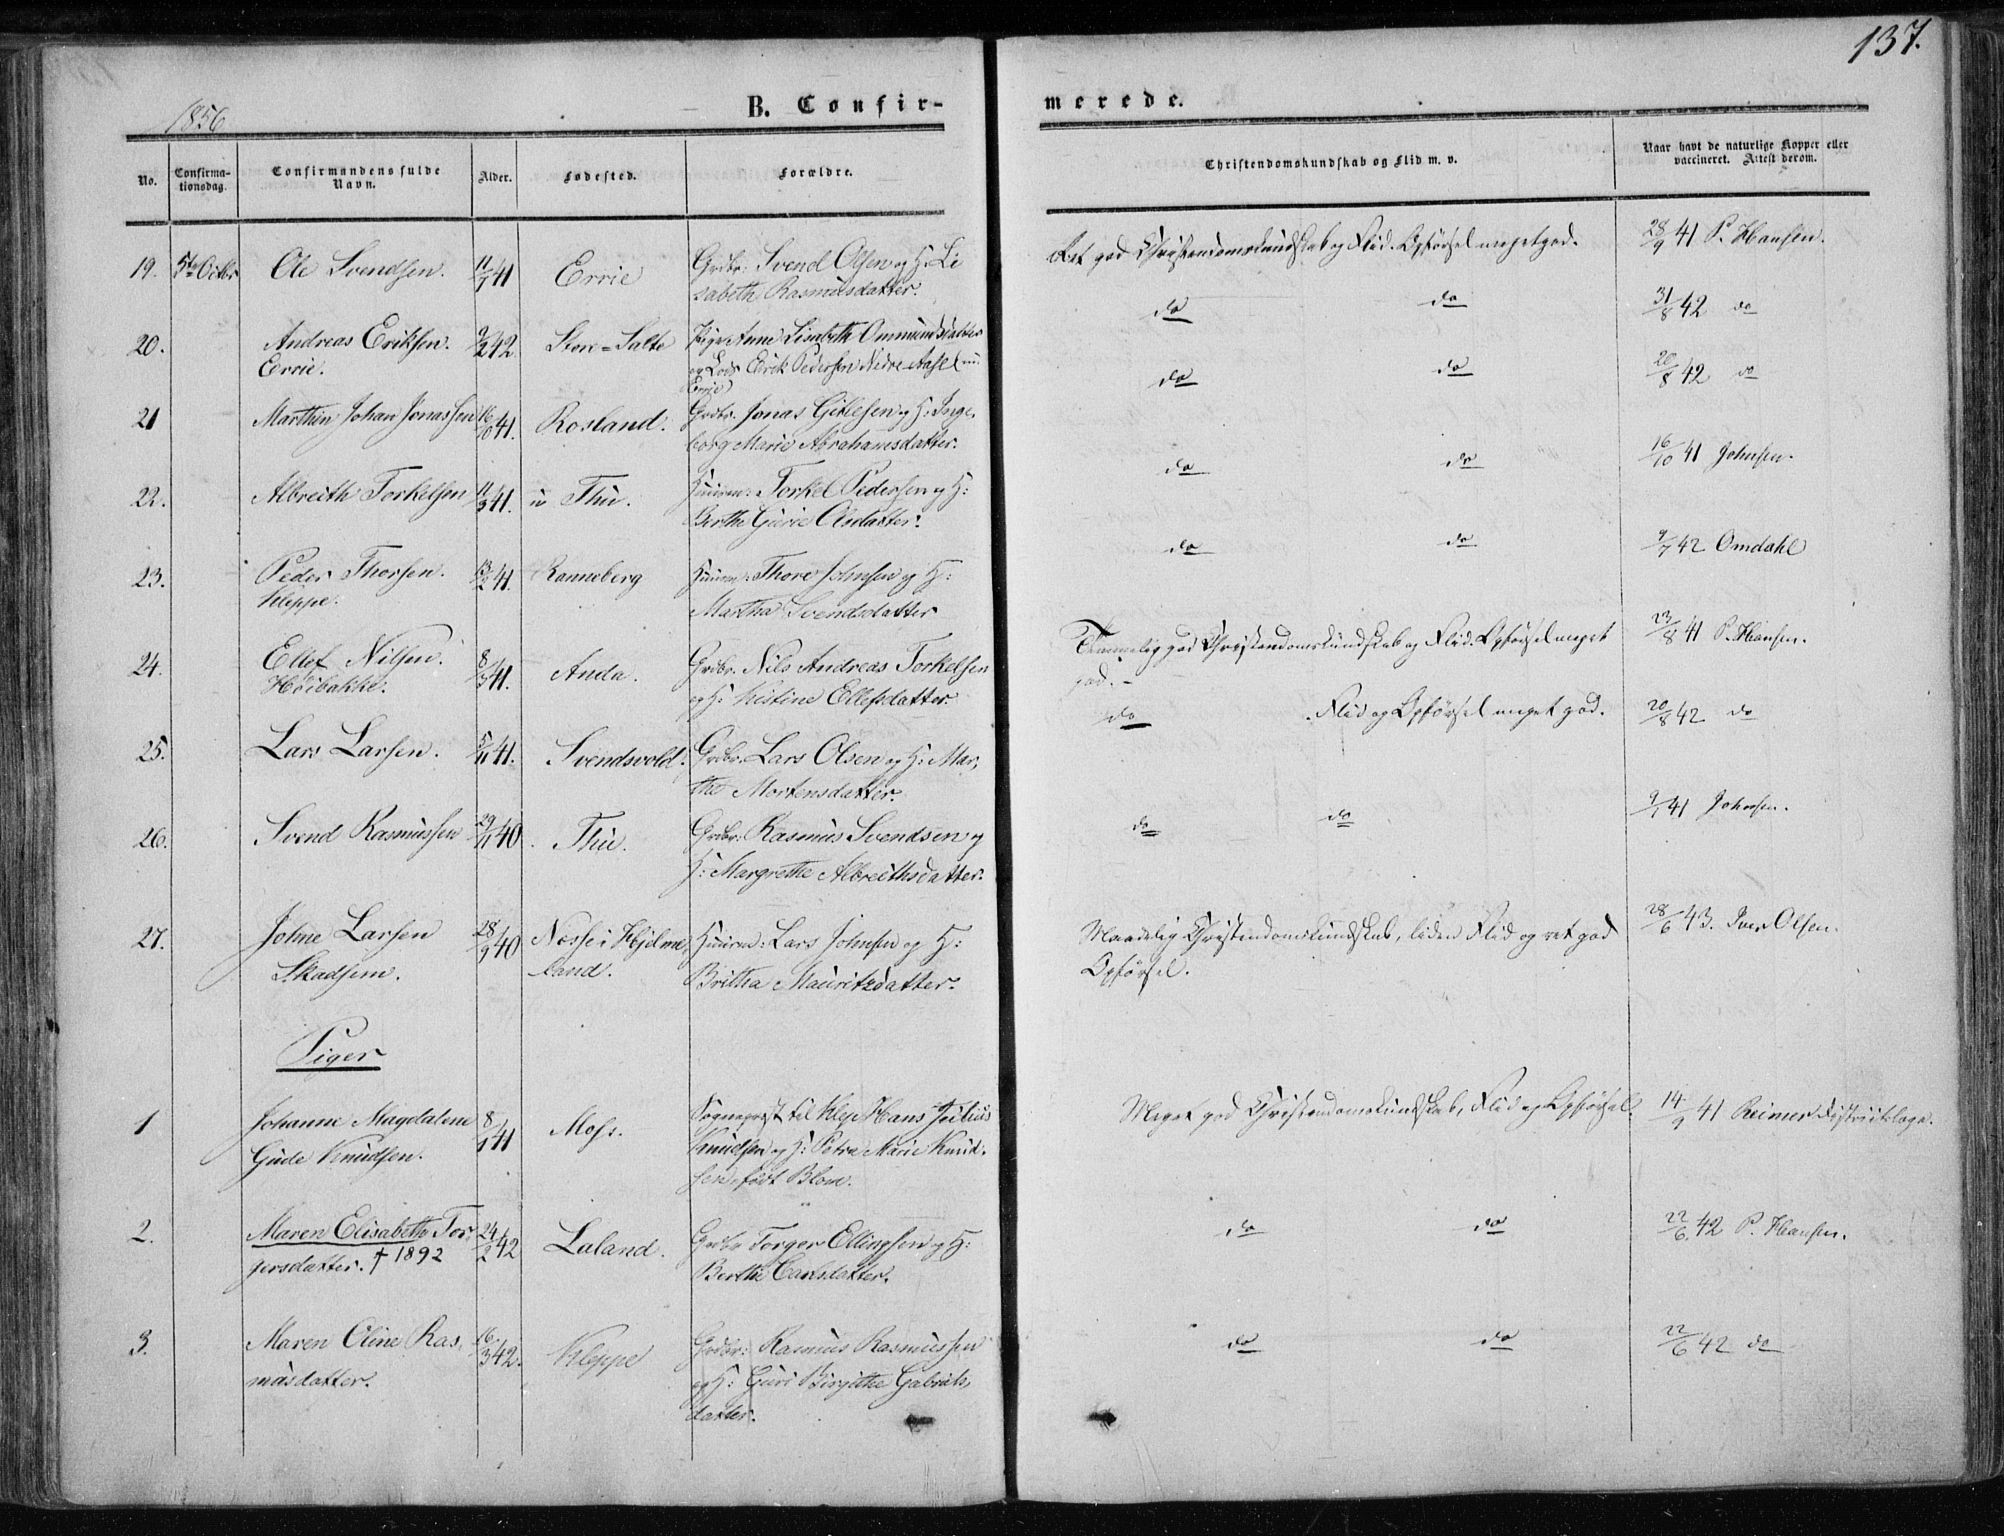 137.
1856
B. Confir-
merede.
No.
Confirma-
tionsdag.
Confirmandens fulde
Navn.
Alder.
Fødested.
Forældre.
Christendomskundskab og Flid m. v.
Naar havt de naturlige Kopper eller
vaccineret. Attest derom.
19. 5te Octbr Ole Svendsen. 11/7 41 Errie Grdbr: Svend Olsen og H: Li
sabeth Rasmusdatter.
Ret god Christendomskundskab og Flid. Opførsel meget god. 28/9 41 P. Hansen.
20. Andreas Eriksen. 9/2 42. Store=Salte Pige Anne Lisabeth Ommundsdatter
Errie. og Lods Eirik Pedersen Nedre Aasel
Errie
do do 31/8 42 do
21 Marthin Johan Jonassen 16/10 41. Rosland. Grdbr. Jonas Gitlesen og H: Inge,
borg Marie Abrahamsdatter.
do do 20/8 42 do
22. Albreith Torkelsen 11/3 41. Thu. Huusm: Torkel Pedersen og H:
Berthe Gurie Olsdatter.
do do 16/10 41 Johnsen.
23. Peder Thorsen. 41. Ranneberg Huusm: Thore Johnsen og H:
Kleppe. Martha Svendsdatter
do do 9/7 42 Omdahl
24. Ellef Nilsen. 8/3 41. Anda. Grdbr. Nils Andreas Torkelsen
Høibakke. og H: Kistine Ellefsdatter.
Temmelig god Christendomskundskab og Flid. Opførsel meget
god. 41 P. Hansen.
25. Lars Larsen. 5/11 41. Svendsvold. Grdbr. Lars Olsen og H: Mar,
the Mortensdatter.
do Flid og Opførsel meget god. 20/8 42 do
26. Svend Rasmussen 29/11 40. Thu. Grdbr: Rasmus Svendsen og
H: Margrethe Albreithsdatter.
do do 9/1 41 Johnsen.
27. Johne Larsen 28/9 40 Næsse i Hjelme,
Skadsem. land. Huusm: Lars Johnsen og H:
Britha Mauritzdatter.
Maadelig Christendomskundskab, liden Flid og ret god
Opførsel. 28/6 43. Iver Olsen.
Piger
1 Johanne Magdalene 8/1 41 Moss. Sognepræst til Klep Hans Julius
Gude Knudsen. Knudsen og H: Petra Marie Knud-
sen, født Blom.
Meget god Christendomskundskab, Flid og Opførsel. 14/9 41 Reimer Districtslæge.
2. Maren Elisabeth Tor, 24/2 42 Laland. Grdbr Torger Ellingsen og H:
gersdatter. † 1892 Berthe Larsdatter.
do do 22/6 42 P. Hansen.
3. Maren Oline Ras, 16/3 42. Kleppe Grdbr: Rasmus Rasmussen
musdatter. og H: Guri Birgitthe Gabriels,
datter.
do do 22/6 42 do